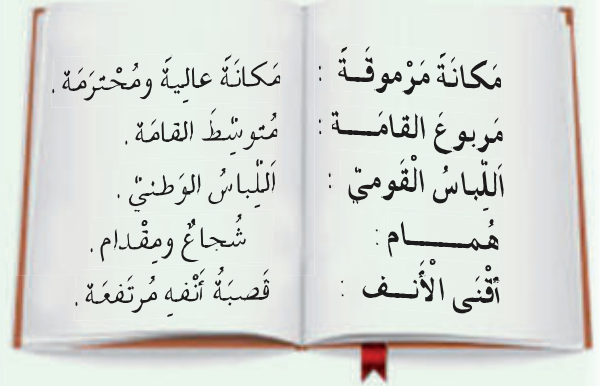 مَكانَةً مَرْموقَــةً : مَكانَةً عالِيةً ومُحْترَمَة .
مَربوعَ القامَـــــة : مُتوسِّطَ القامَة .
اَللِّباسُ الْقَوميّ : اَللِّباسُ الوَطنيّ .
هُمـــــــــام : شُجاعٌ ومِقْدام .
أقْنَى الْأَنـــف : قَصَبَةُ أنْفهِ مُرتَفعَة .